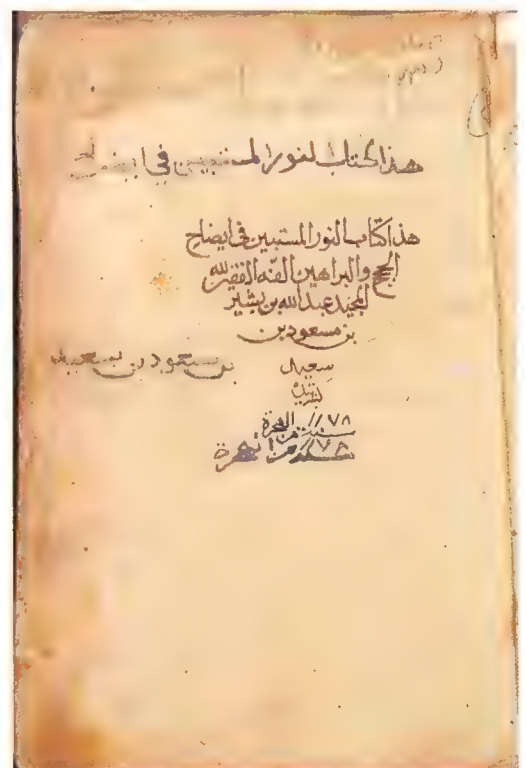 هذا كتاب النور المستبين في ايضاح
هذا كتاب النور المستبين في ايضاح
الحجج والبراهين الفه الفقير لله
المجيد عبد الله بن بشير
بن مسعود بن
سعيد
بن سعود بن سعيد
سنة ١١٧٨ من الهجرة
سنة ١١٧٨ من الهجرة